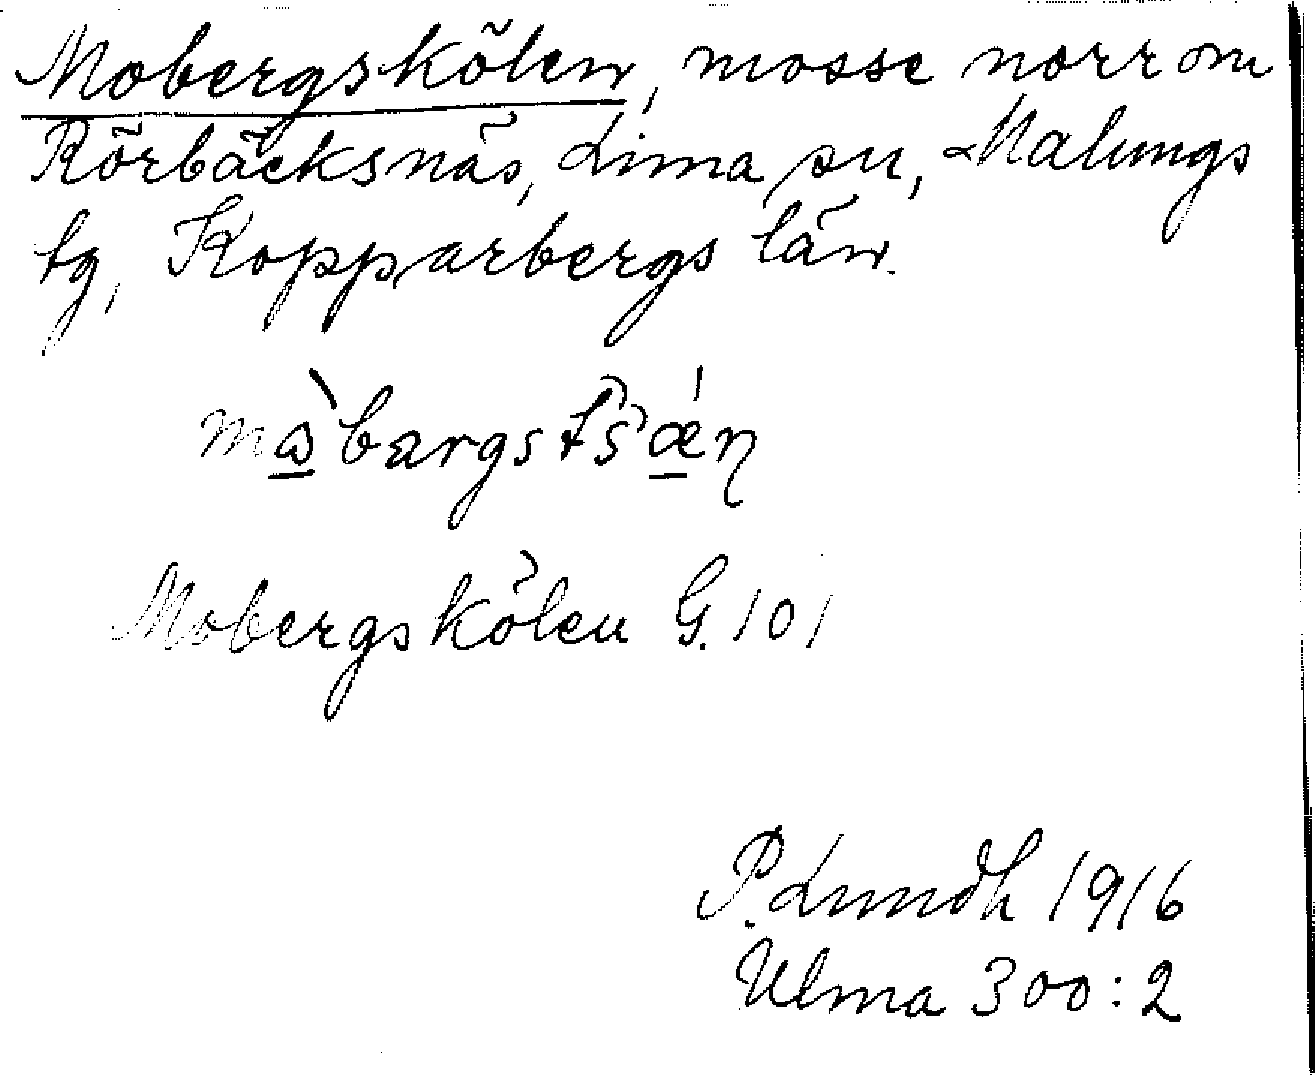 Mobergskölen, mosse norr om
Rörbäcksnäs, Lima sn, Malungs
tg, Kopparbergs län.
Mobergskölen G. 101
P. Lundh 1916
Ulma 300:2